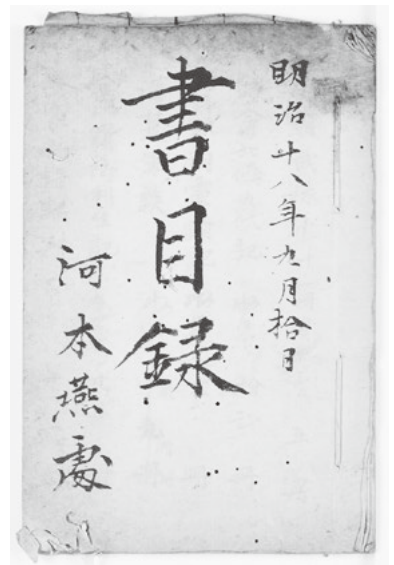 明治十八年九月拾日
書目録
河本燕處